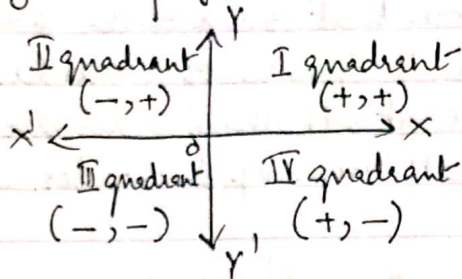 Y
II quadrant I quadrant
(-,+) (+,+)
X' o X
III quadrant IV quadrant
(-,-) (+,-)
Y'